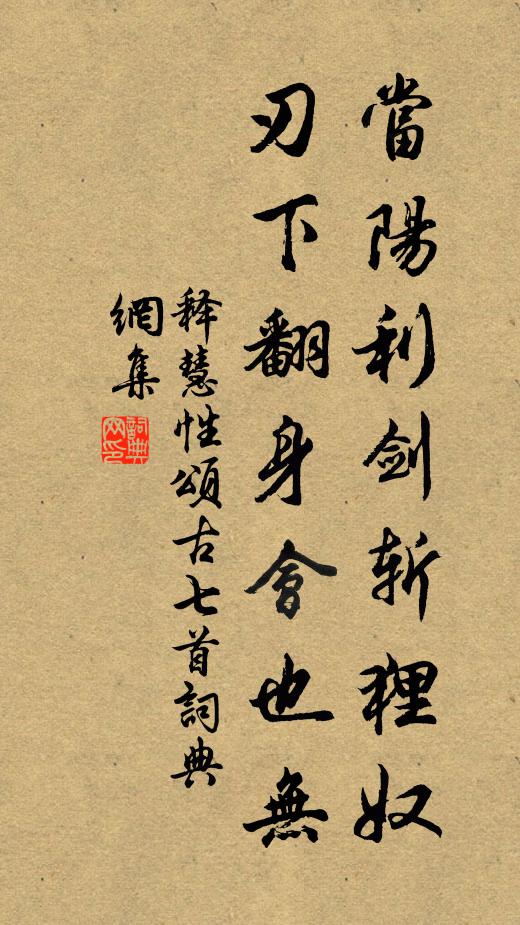 當陽利劍斬狸奴
刃下翻身會也無
释慧性頌古七首詞典
網集
詞典
网印